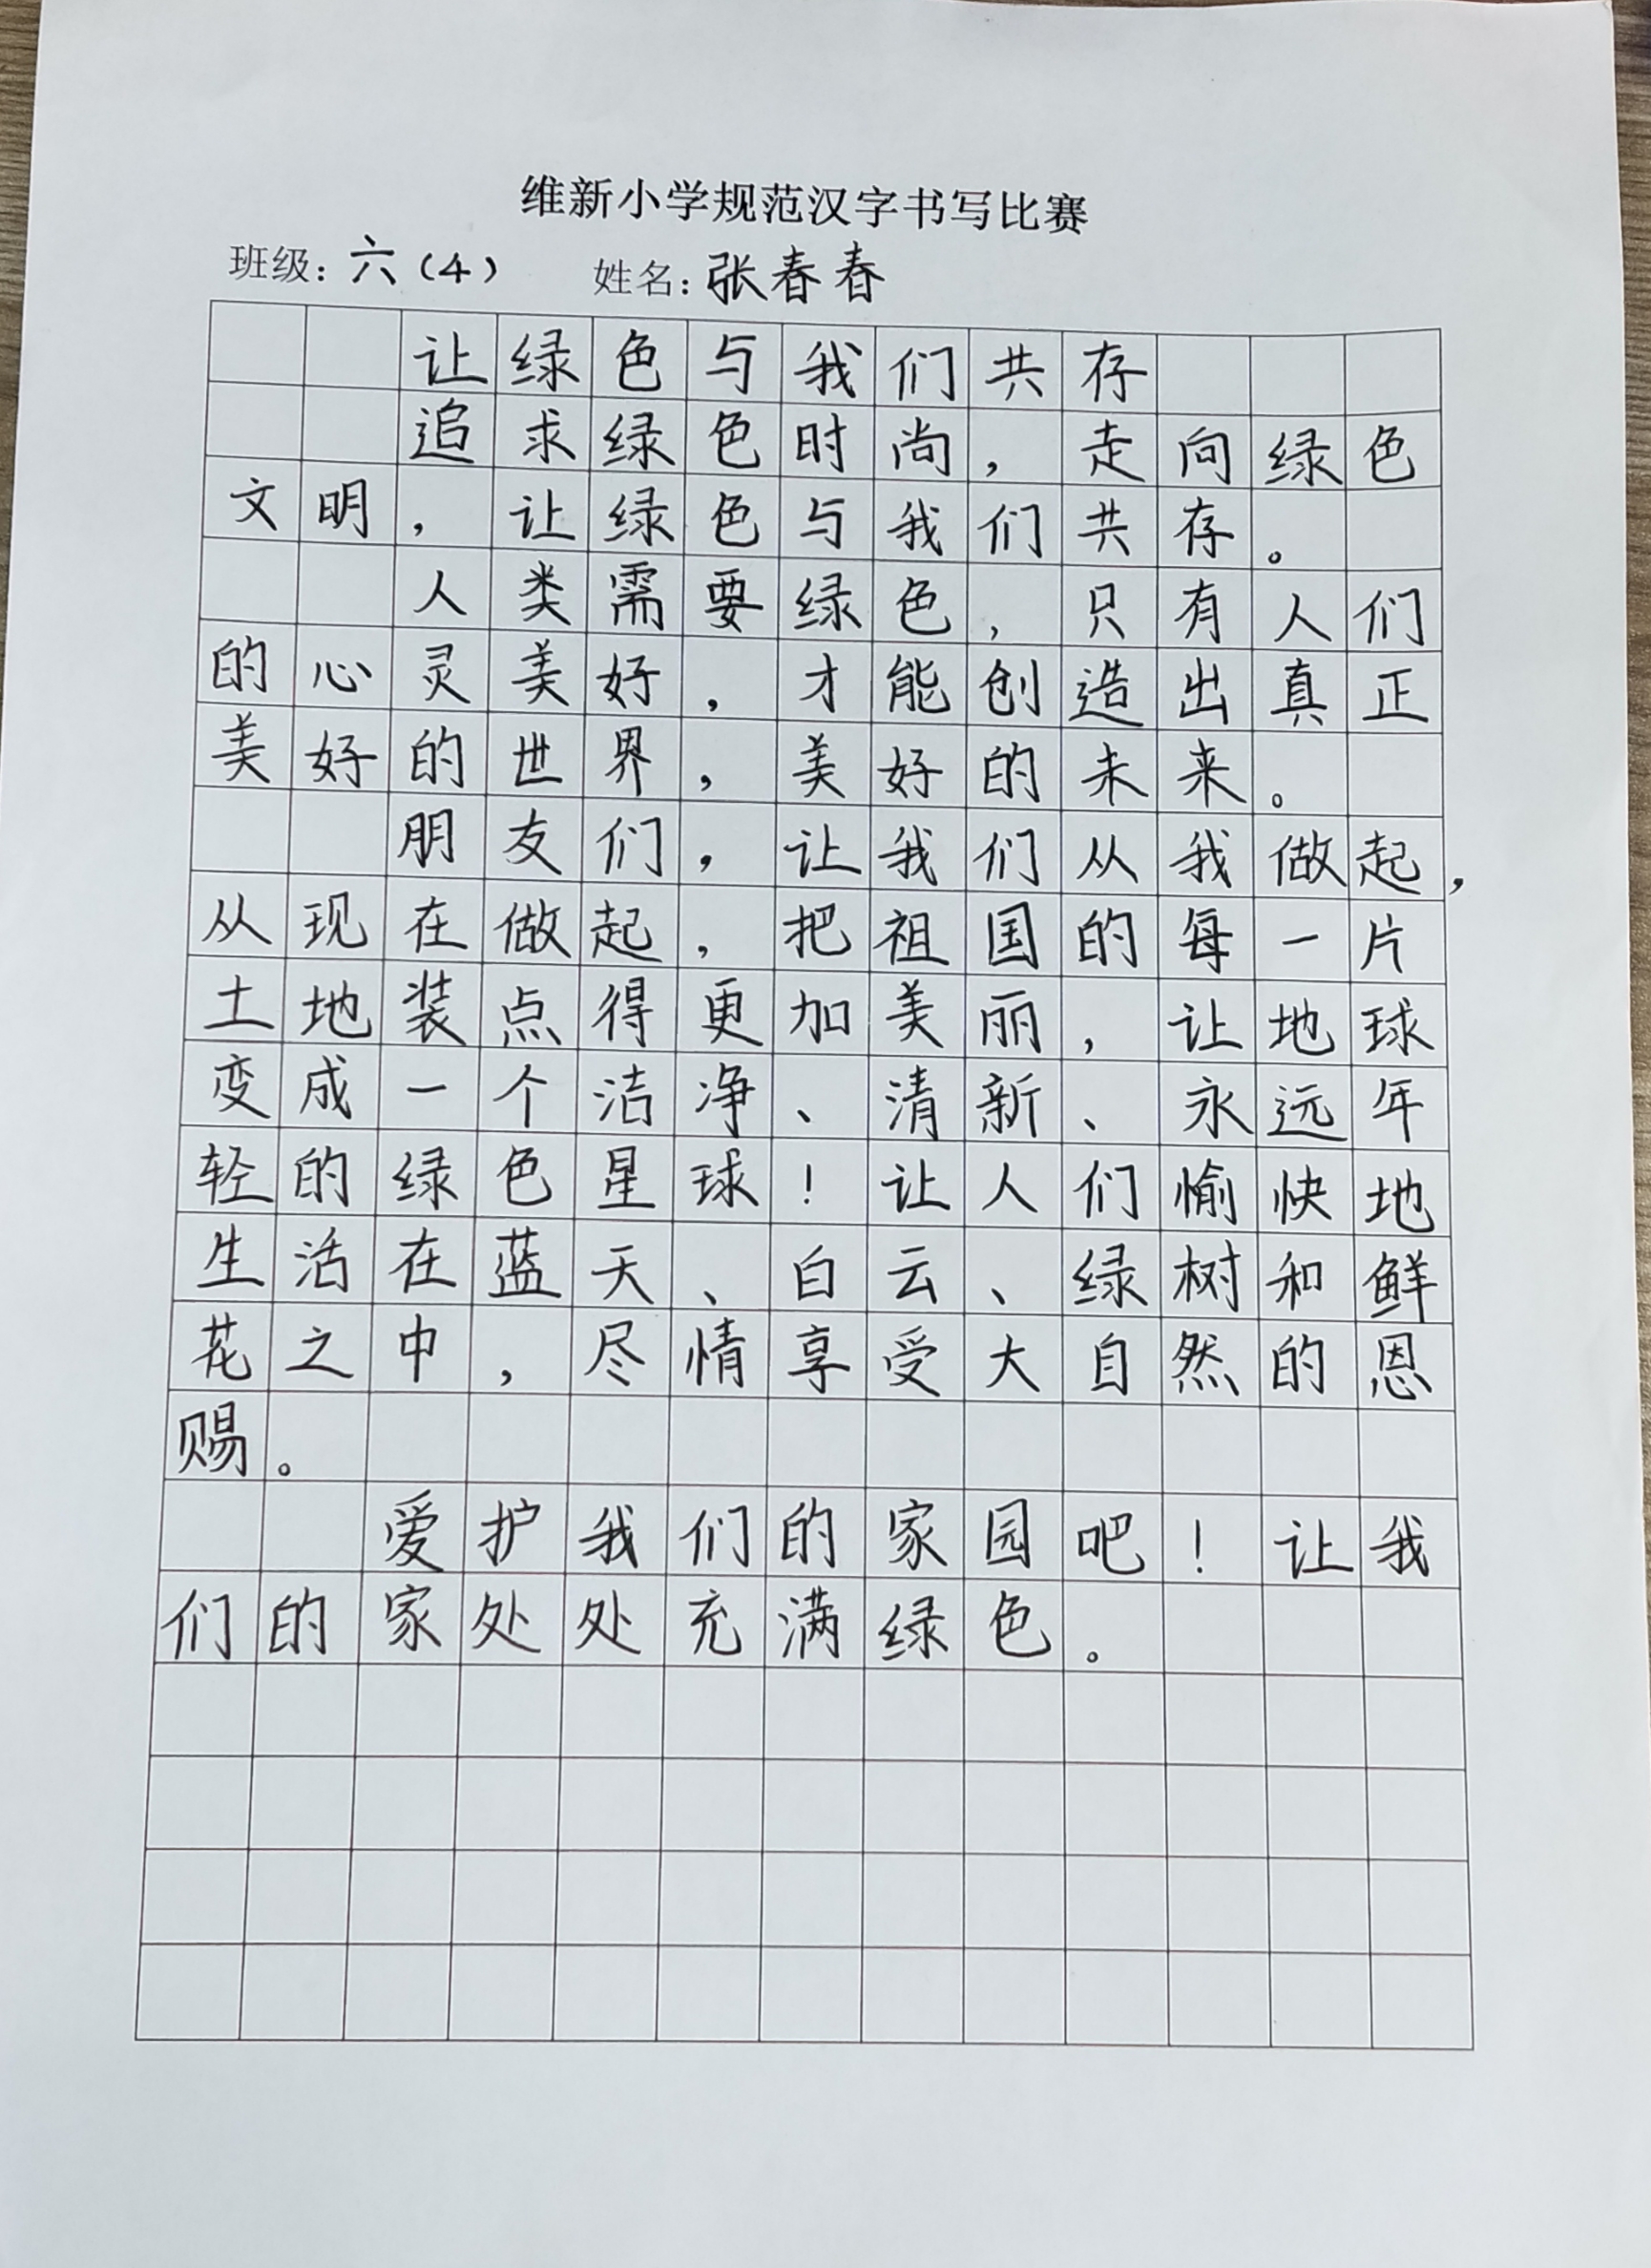 维新小学规范汉字书写比赛
班级：六（4） 姓名：张春春
让绿色与我们共存
追求绿色时尚，走向绿色
文明，让绿色与我们共存。
人类需要绿色，只有人们
的心灵美好，才能创造出真正
美好的世界，美好的未来。
朋友们，让我们从我做起，
从现在做起，把祖国的每一片
土地装点得更加美丽，让地球
变成一个洁净、清新、永远年
轻的绿色星球！让人们愉快地
生活在蓝天、白云、绿树和鲜
花之中，尽情享受大自然的恩
赐。
爱护我们的家园吧！让我
们的家处处充满绿色。